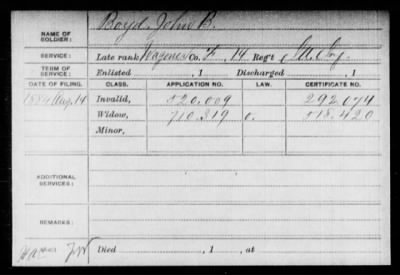 Boyd John B.
NAME OF SOLDIER:
SERVICE: Late rank Wagoner Co. F, 14 Reg't Ill. Cav.
TERM OF SERVICE: Enlisted , 1 Discharged , 1
DATE OF FILING. CLASS. APPLICATION NO. LAW. CERTIFICATE NO.
1884 Aug. 14 Invalid, 520.009 292.074
Widow, 710.319 518.420
Minor,
ADDITIONAL SERVICES:
REMARKS:
Died , 1 , at